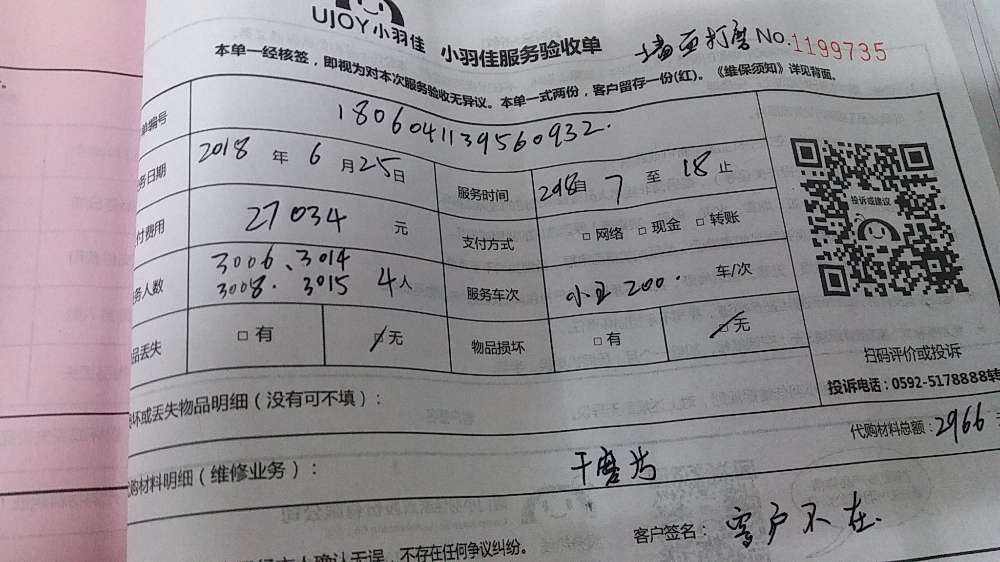 UJOY小羽佳
小羽佳服务验收单 墙面打磨 No.1199735
本单一经核签，即视为对本次服务验收无异议。本单一式两份，客户留存一份(红)。《维保须知》详见背面。
单编号 1806041139560932.
务日期 2018 年 6 月 25 日 服务时间 7 至 18 止
付费用 27034 元 支付方式 □网络 □现金 □转账
务人数 3006、3014
3008. 3015 4人 服务车次 200. 车/次
品丢失 □有 □无 物品损坏 □有 □无
投诉或建议
扫码评价或投诉
投诉电话：0592-5178888转
坏或丢失物品明细（没有可不填）：
代购材料总额：2966
购材料明细（维修业务）： 干磨片
客户签名： 客户不在.
确认无误，不存在任何争议纠纷。